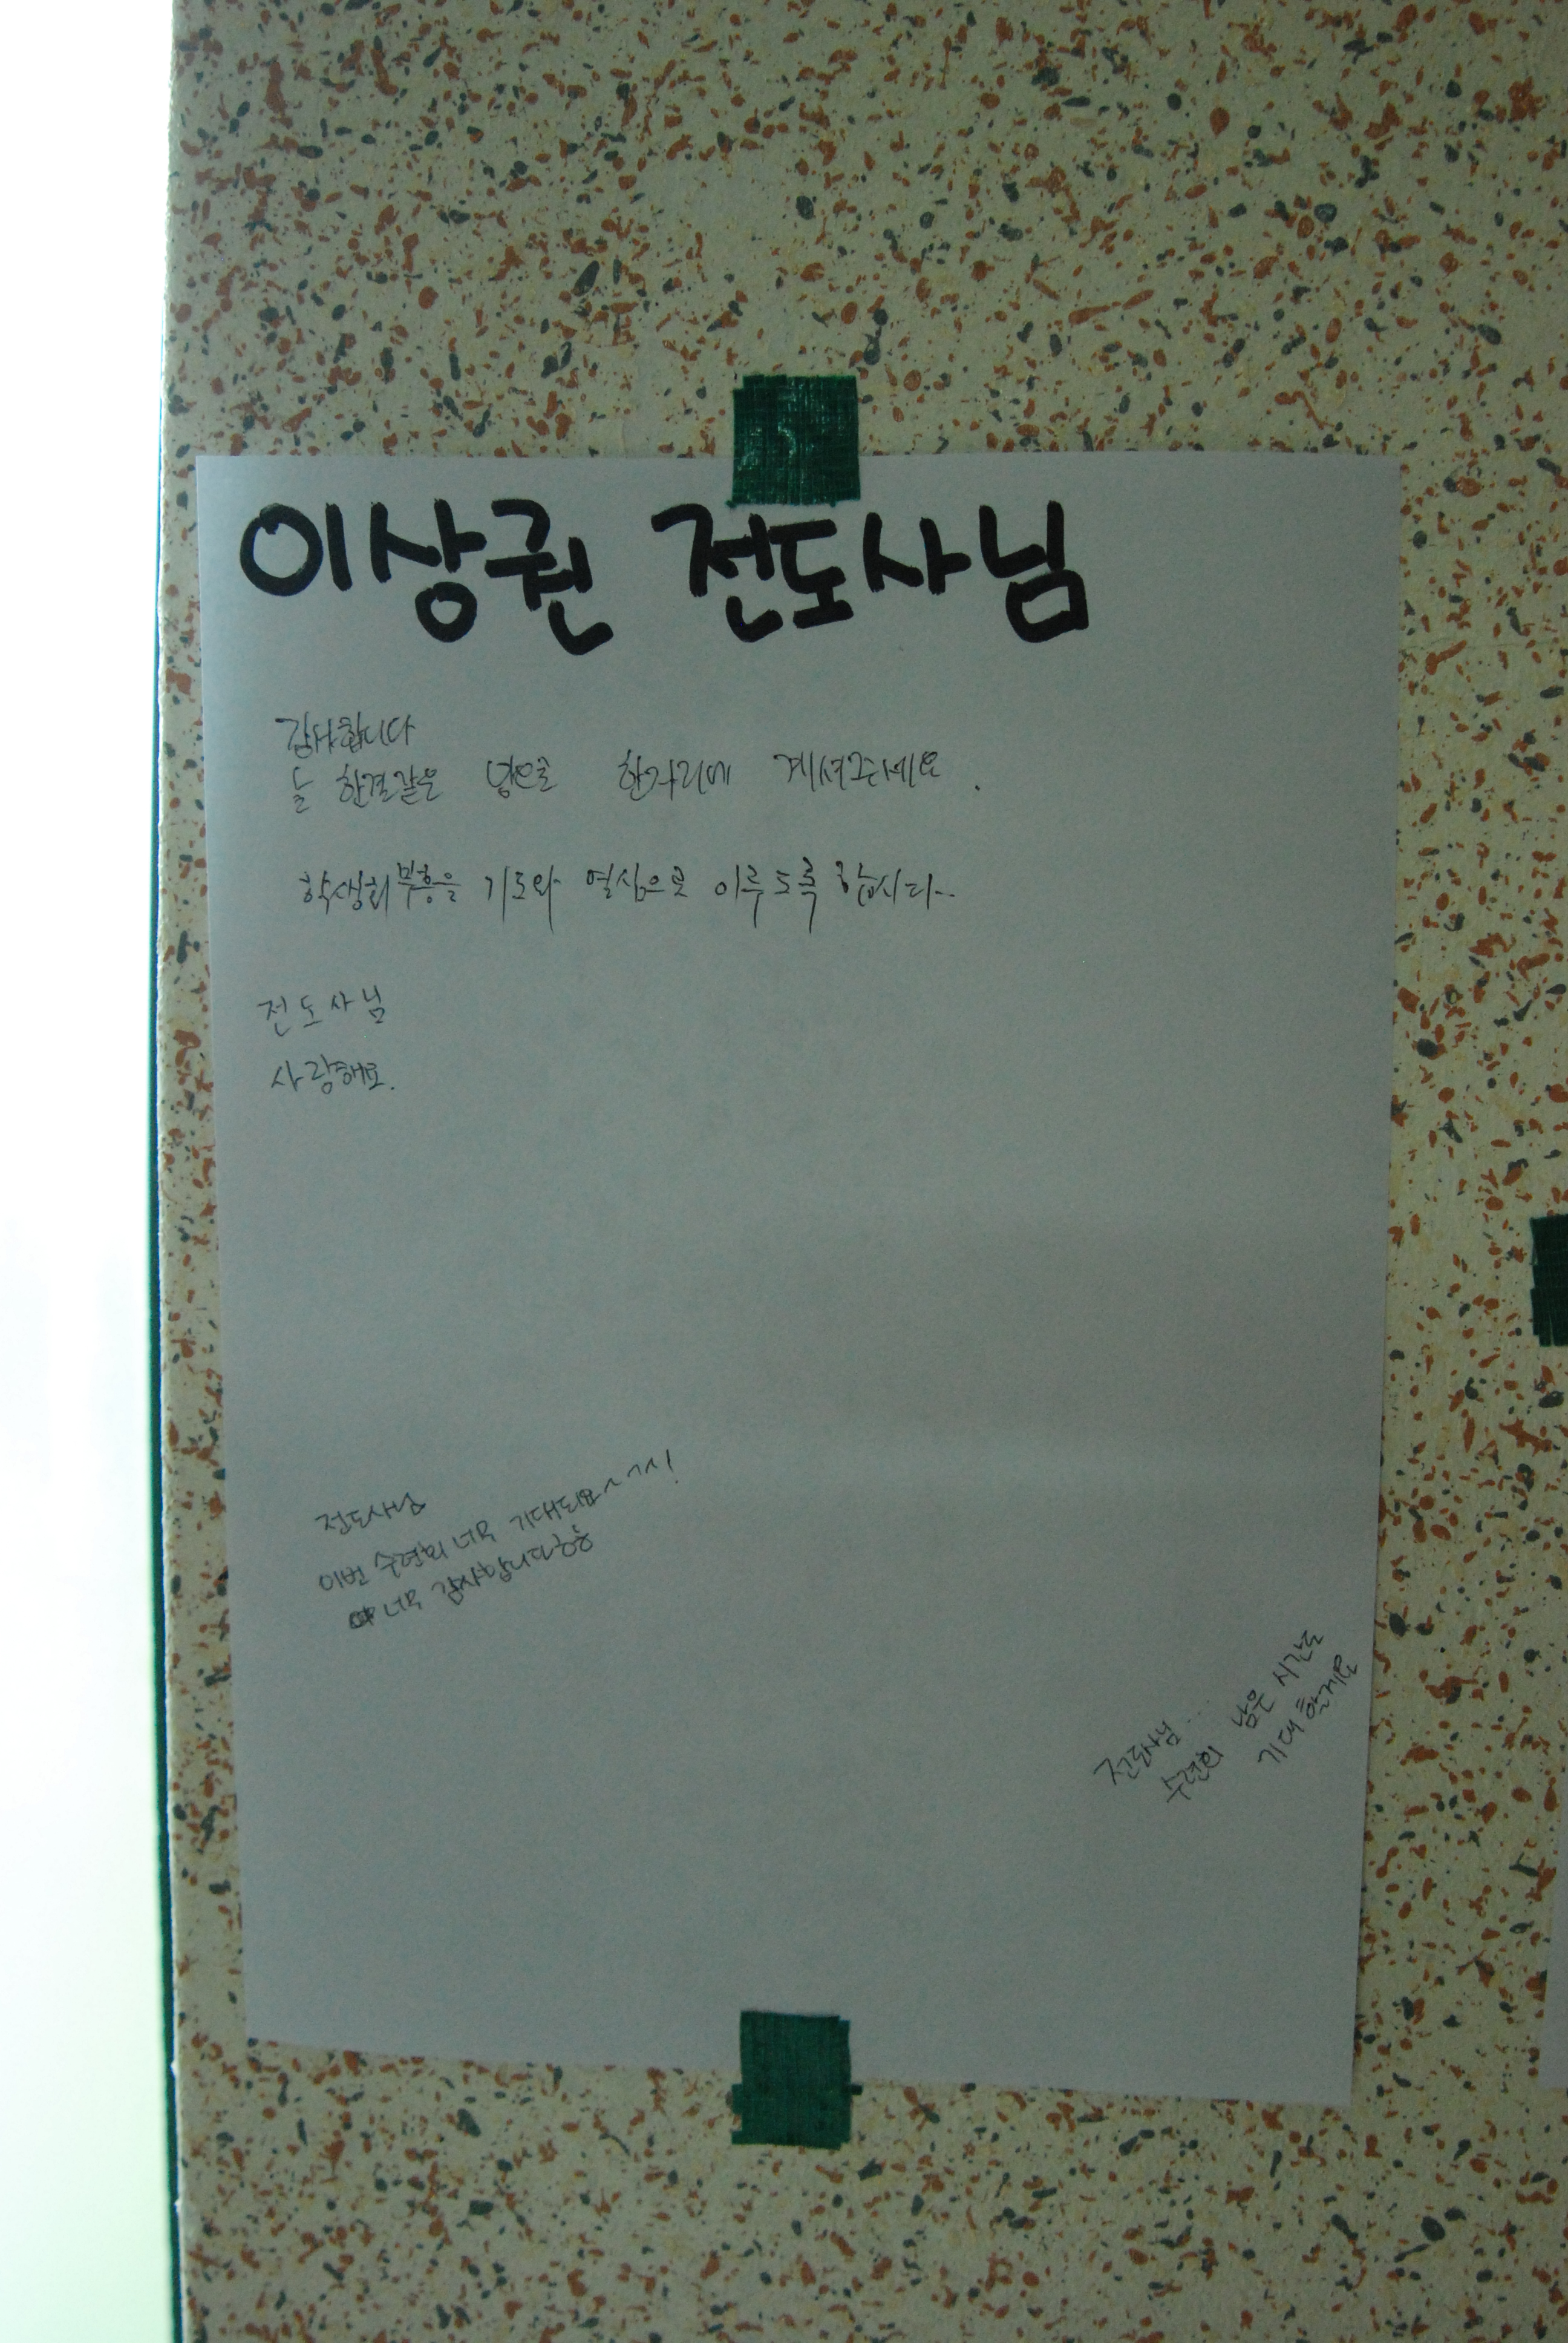 이상권 전도사님
감사합니다
늘 한결같은 맘으로 한자리에 계셔주세요.
학생회 부흥을 기도와 열심으로 이루도록 합시다..
전도사님
사랑해요.
전도사님
이번 수련회 너무 기대되요~~~!
너무 감사합니다
전도사님...
수련회 남은 시간도
기대할게요